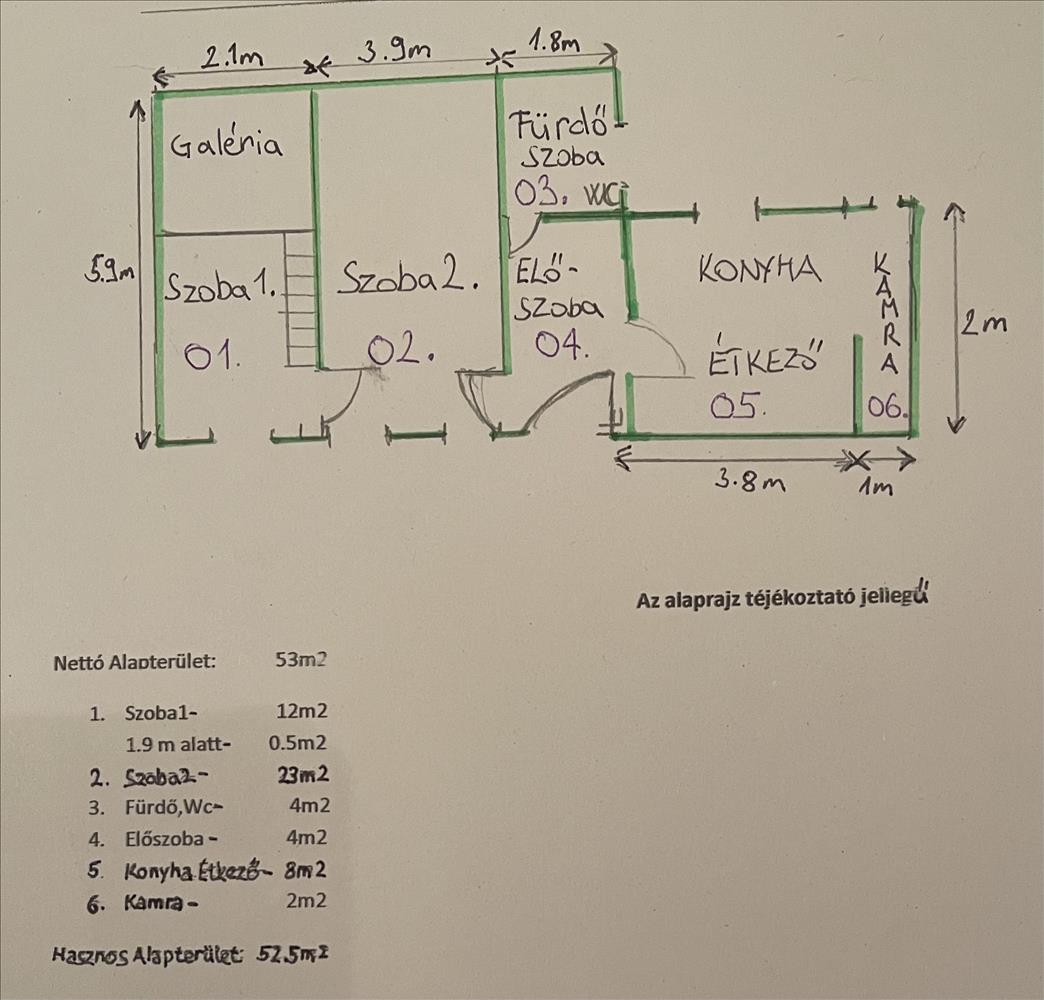 2.1m 3.9m 1.8m
Galéria
Fürdő-
szoba
03. WC
5.9m
Szoba 1.
01.
Szoba 2.
02.
ELŐ-
SZOBA
04.
KONYHA
ÉTKEZŐ
05.
KAMRA
06.
2m
3.8m 1m
Az alaprajz téjékoztató jellegű
Nettó Alapterület: 53m2
1. Szoba1- 12m2
1.9 m alatt- 0.5m2
2. Szoba2- 23m2
3. Fürdő,Wc- 4m2
4. Előszoba - 4m2
5. Konyha Étkező- 8m2
6. Kamra - 2m2
Hasznos Alapterület: 52.5m2